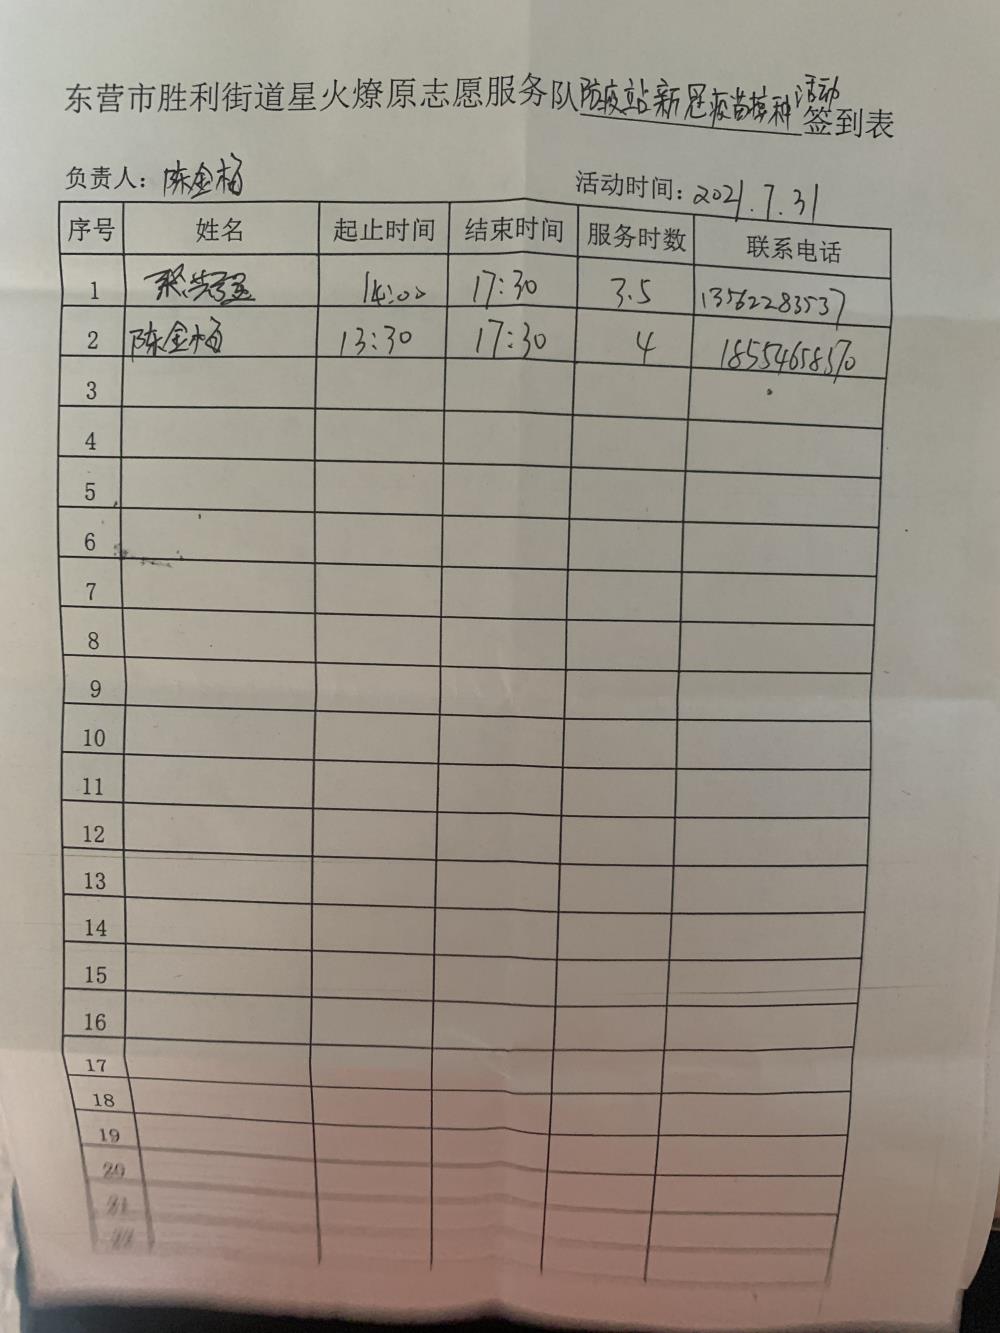 东营市胜利街道星火燎原志愿服务队防疫站新冠疫苗接种活动签到表
负责人：陈金梅 活动时间：2021.7.31
序号 姓名 起止时间 结束时间 服务时数 联系电话
1 14:00 17:30 3.5 13562283537
2 陈金梅 13:30 17:30 4 18554658570
3
4
5
6
7
8
9
10
11
12
13
14
15
16
17
18
19
20
21
22